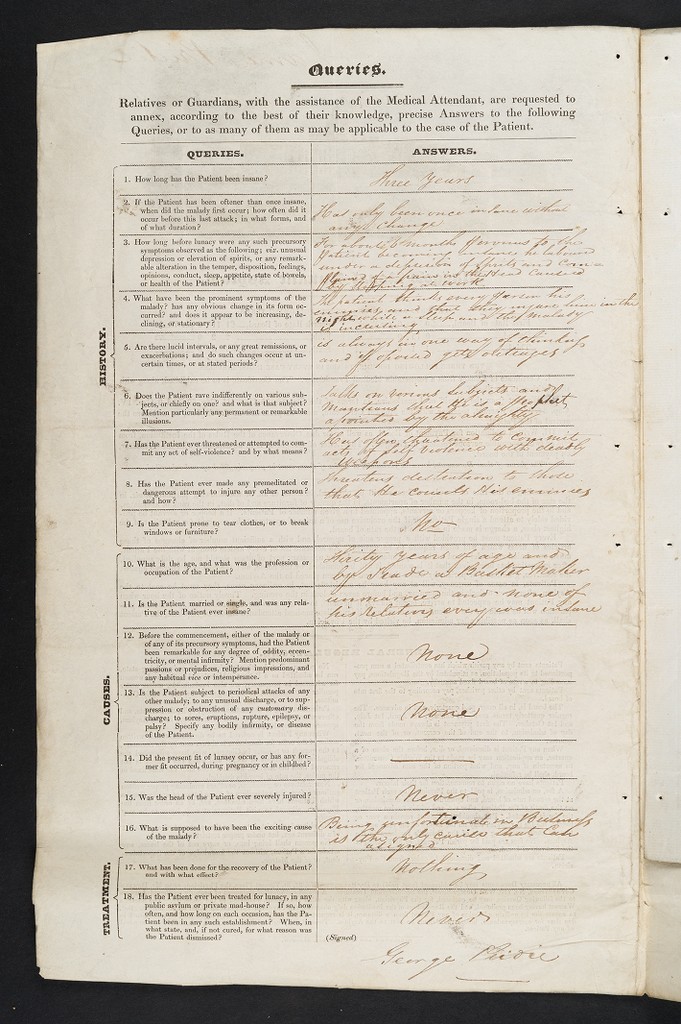 Queries.
Relatives or Guardians, with the assistance of the Medical Attendant, are requested to
annex, according to the best of their knowledge, precise Answers to the following
Queries, or to as many of them as may be applicable to the case of the Patient.
QUERIES.
ANSWERS.
HISTORY.
1. How long has the Patient been insane?
Three Years
2. If the Patient has been oftener than once insane,
when did the malady first occur; how often did it
occur before this last attack; in what forms, and
of what duration?
Has only been once insane without
any Change
3. How long before lunacy were any such precursory
symptoms observed as the following; viz. unusual
depression or elevation of spirits, or any remark-
able alteration in the temper, disposition, feelings,
opinions, conduct, sleep, appetite, state of bowels,
or health of the Patient?
For about 6 months previous to the
Patient becoming insane he laboured
under a depression of spirits and Com-
plained of a pain in the Head Caused
by stopping at work
4. What have been the prominent symptoms of the
malady? has any obvious change in its form oc-
curred? and does it appear to be increasing, de-
clining, or stationary?
The patient thinks every person his
enimies, and that they injure him in the
Night while a sleep and the Malady
is increasing
5. Are there lucid intervals, or any great remissions, or
exacerbations; and do such changes occur at un-
certain times, or at stated periods?
is always in one way of thinking
and if oposed gets outrages
6. Does the Patient rave indifferently on various sub-
jects, or chiefly on one? and what is that subject?
Mention particularly any permanent or remarkable
illusions.
Talks on various Subjects and
Mantians that He is a Prophet
apointed by the almighty
7. Has the Patient ever threatened or attempted to com-
mit any act of self-violence? and by what means?
Has often thratened to Commit
acts of self Violence with deadly
Weapons
8. Has the Patient ever made any premeditated or
dangerous attempt to injure any other person?
and how?
threatens destruction to those
that He counts His enimies
9. Is the Patient prone to tear clothes, or to break
windows or furniture?
No
CAUSES.
10. What is the age, and what was the profession or
occupation of the Patient?
Thirty years of age and
by Trade a Basket Maker
11. Is the Patient married or single, and was any rela-
tive of the Patient ever insane?
unmarried and none of
his Relations every was insane
12. Before the commencement, either of the malady or
of any of its precursory symptoms, had the Patient
been remarkable for any degree of oddity, eccen-
tricity, or mental infirmity? Mention predominant
passions or prejudices, religious impressions, and
any habitual vice or intemperance.
None
13. Is the Patient subject to periodical attacks of any
other malady; to any unusual discharge, or to sup-
pression or obstruction of any customary dis-
charge; to sores, eruptions, rupture, epilepsy, or
palsy? Specify any bodily infirmity, or disease
of the Patient.
None
14. Did the present fit of lunacy occur, or has any for-
mer fit occurred, during pregnancy or in childbed?
15. Was the head of the Patient ever severely injured?
Never
16. What is supposed to have been the exciting cause
of the malady?
Being unfortunate in Business
is the only cause that Can
asigned
TREATMENT.
17. What has been done for the recovery of the Patient?
and with what effect?
Nothing
18. Has the Patient ever been treated for lunacy, in any
public asylum or private mad-house? If so, how
often, and how long on each occasion, has the Pa-
tient been in any such establishment? When, in
what state, and, if not cured, for what reason was
the Patient dismissed?
Never
(Signed)
George